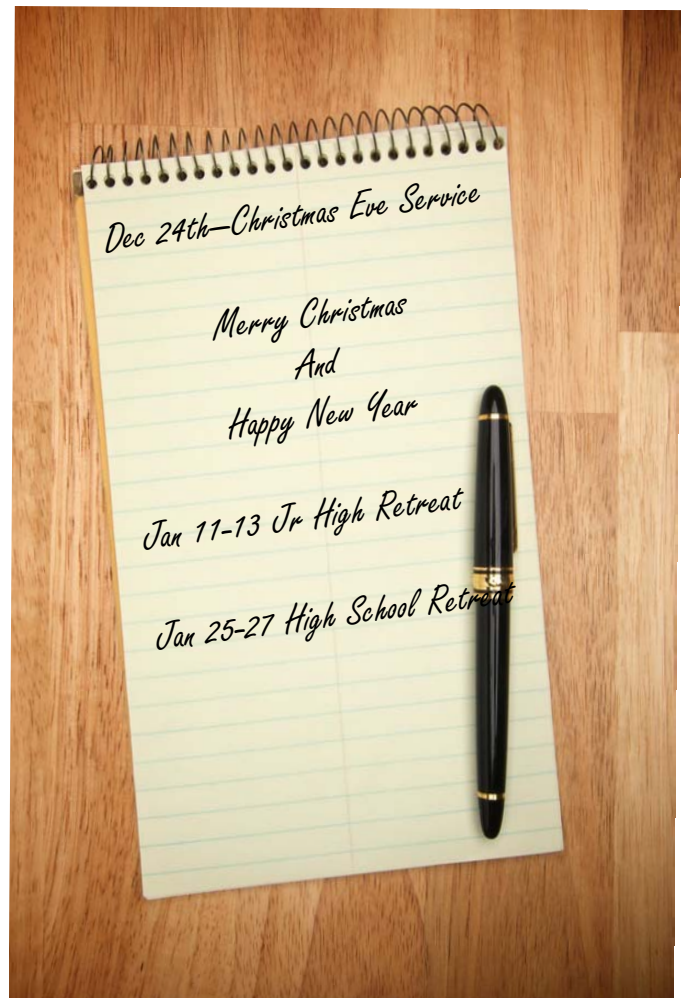 Dec 24th—Christmas Eve Service
Merry Christmas
And
Happy New Year
Jan 11-13 Jr High Retreat
Jan 25-27 High School Retreat